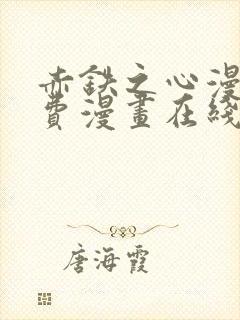 赤鉄之心漫
費漫畫在綫
唐海霞